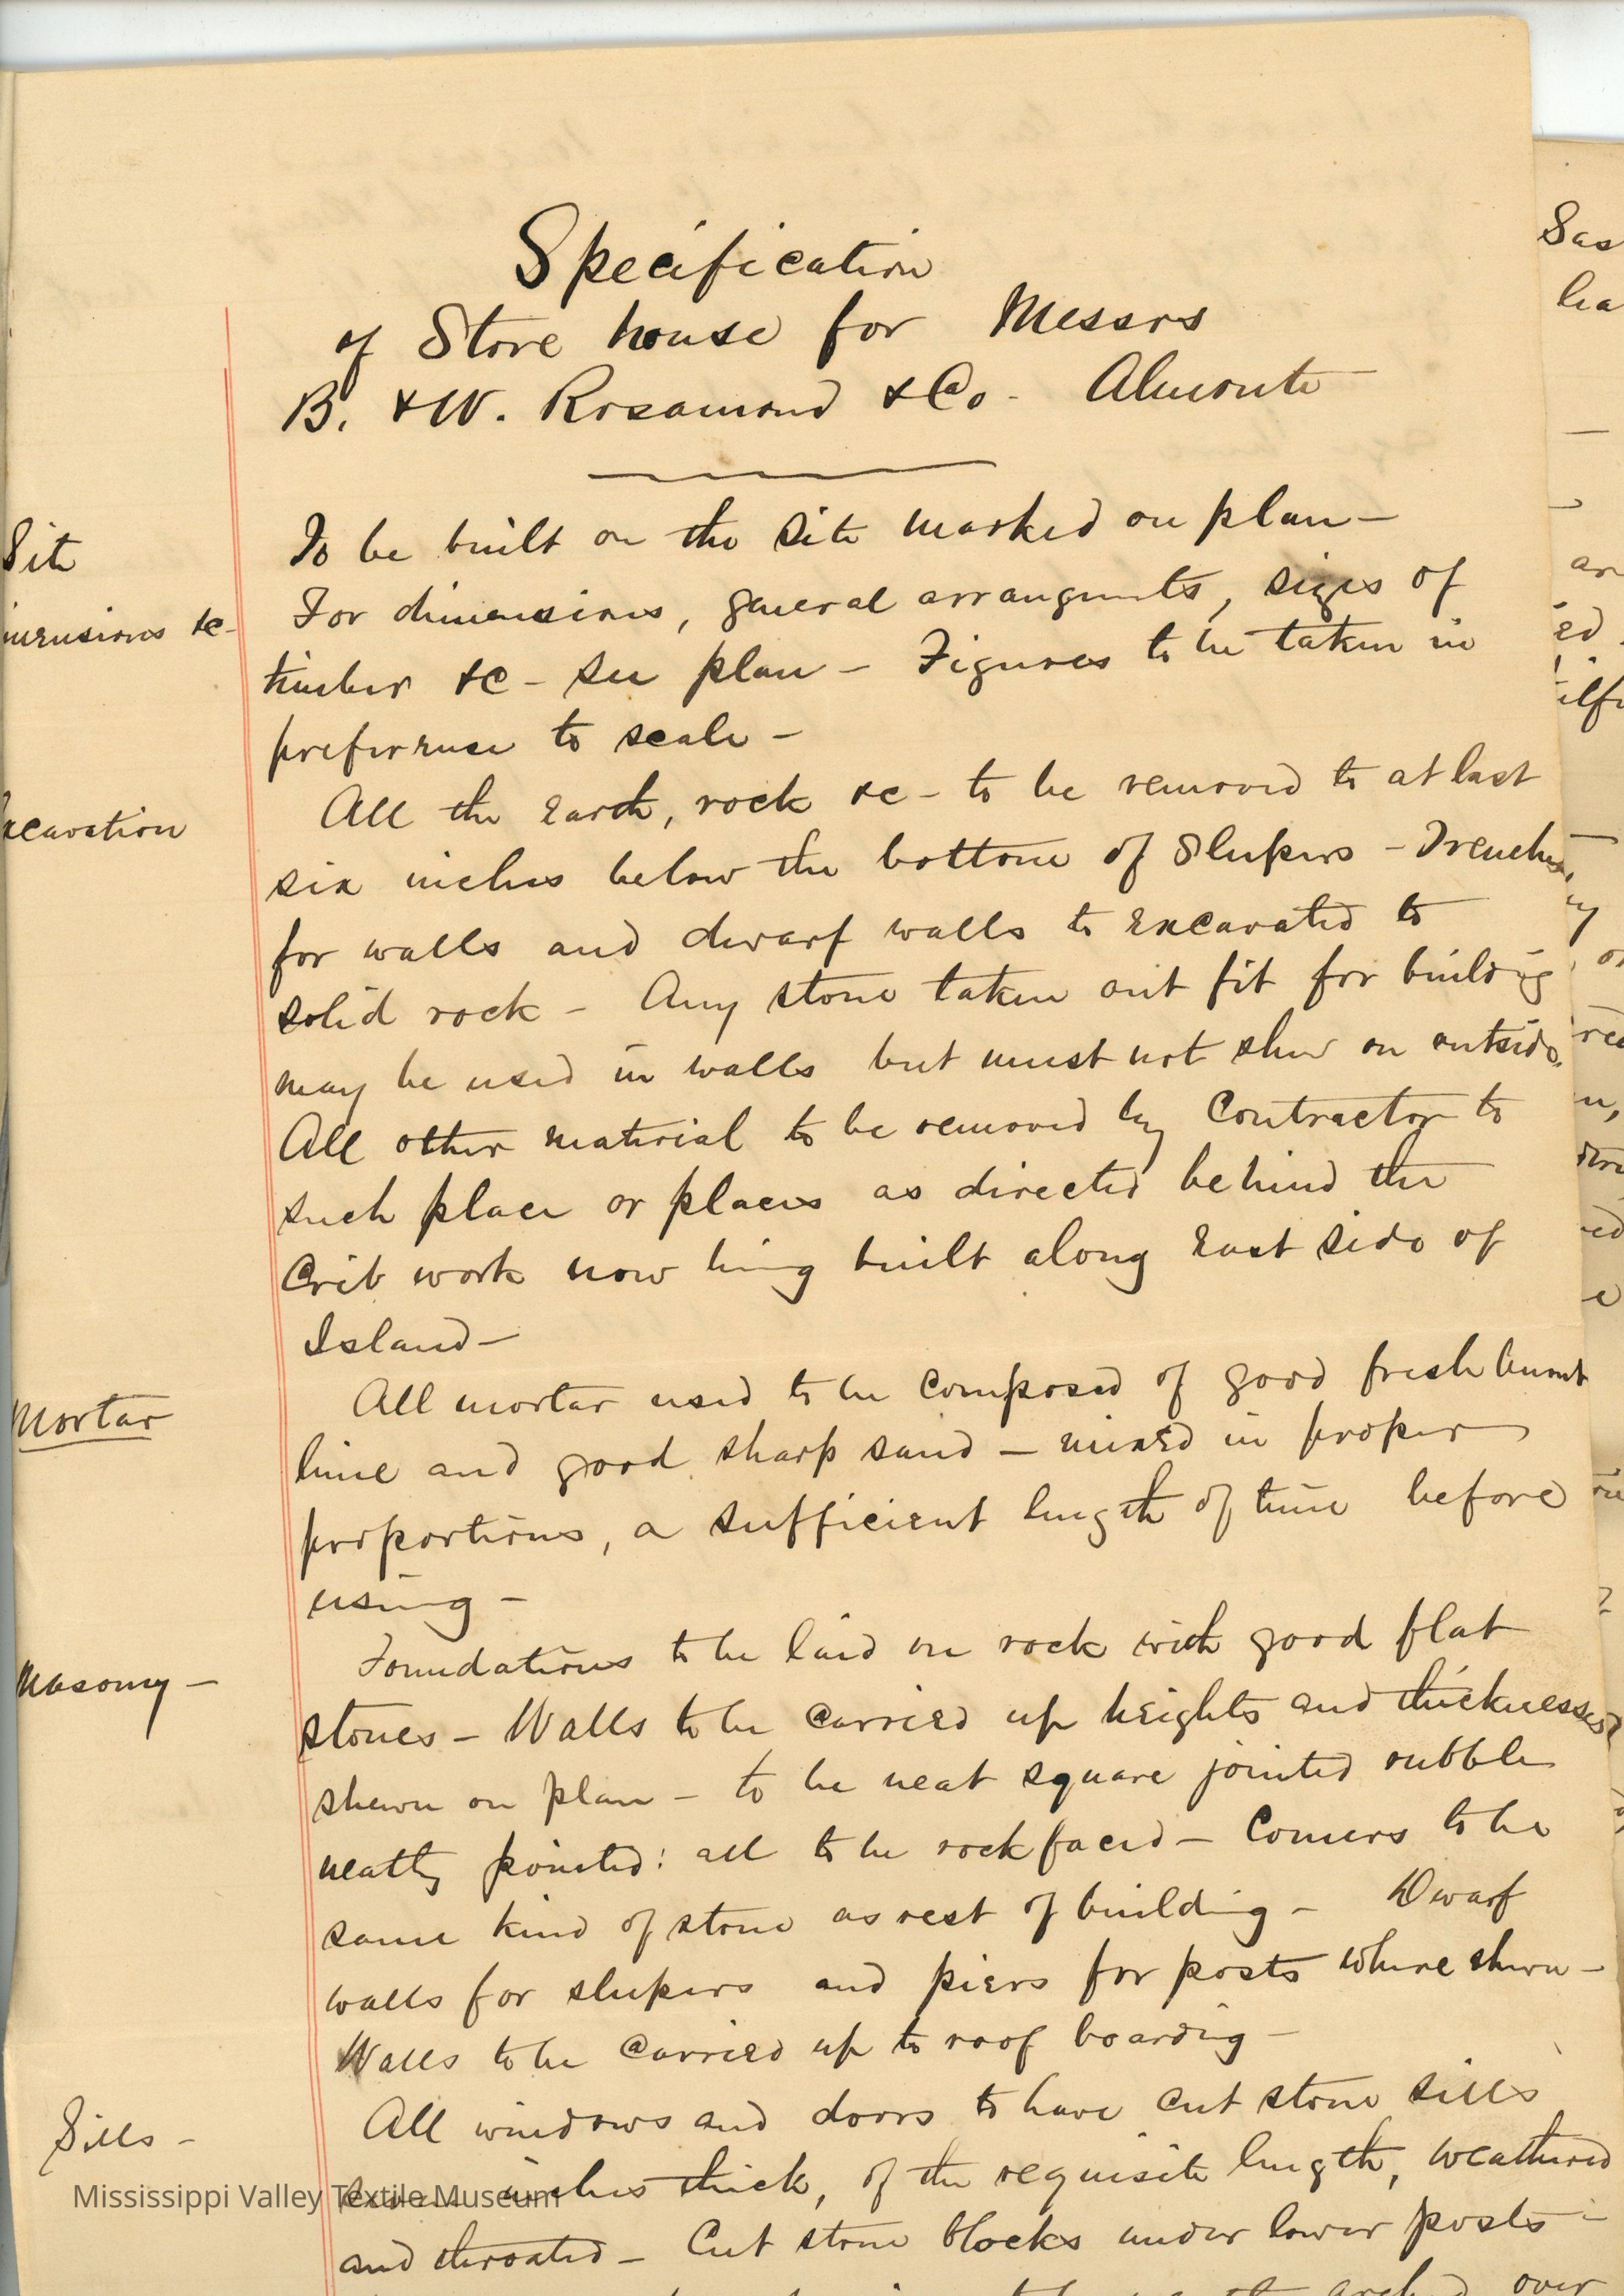 Specification
of Store house for Messrs
B. & W. Rosamond & Co. Almonte
Site
To be built on the site marked on plan –
mensions &c –
For dimensions, general arrangments, sizes of
timber &c – see plan – Figures to be taken in
preference to scale –
xcavation
All the Earth, rock &c – to be removed to at least
six inches below the bottom of Sleepers – Trenches
for walls and dwarf walls to Excavated to
solid rock – Any stone taken out fit for building
may be used in walls but must not show on outside.
All other material to be removed by Contractor to
such place or places as directed behind the
Crib work now being built along East side of
Island –
Mortar
All mortar used to be composed of good fresh burnt
lime and good sharp sand – mixed in proper
proportions, a sufficient length of time before
using –
Masonry –
Foundations to be laid on rock with good flat
stones – Walls to be carried up heights and thicknesses
shewn on plan – to be neat square jointed rubble
neatly pointed: all to be rock faced – Corners to be
same kind of stone as rest of building – Dwarf
walls for sleepers and piers for posts where shewn –
Walls to be carried up to roof boarding –
Sills –
All windows and doors to have cut stone sills
inches thick, of the requisite length, weathered
and throated – Cut stone blocks under lower posts –
arched over
Mississippi Valley Textile Museum